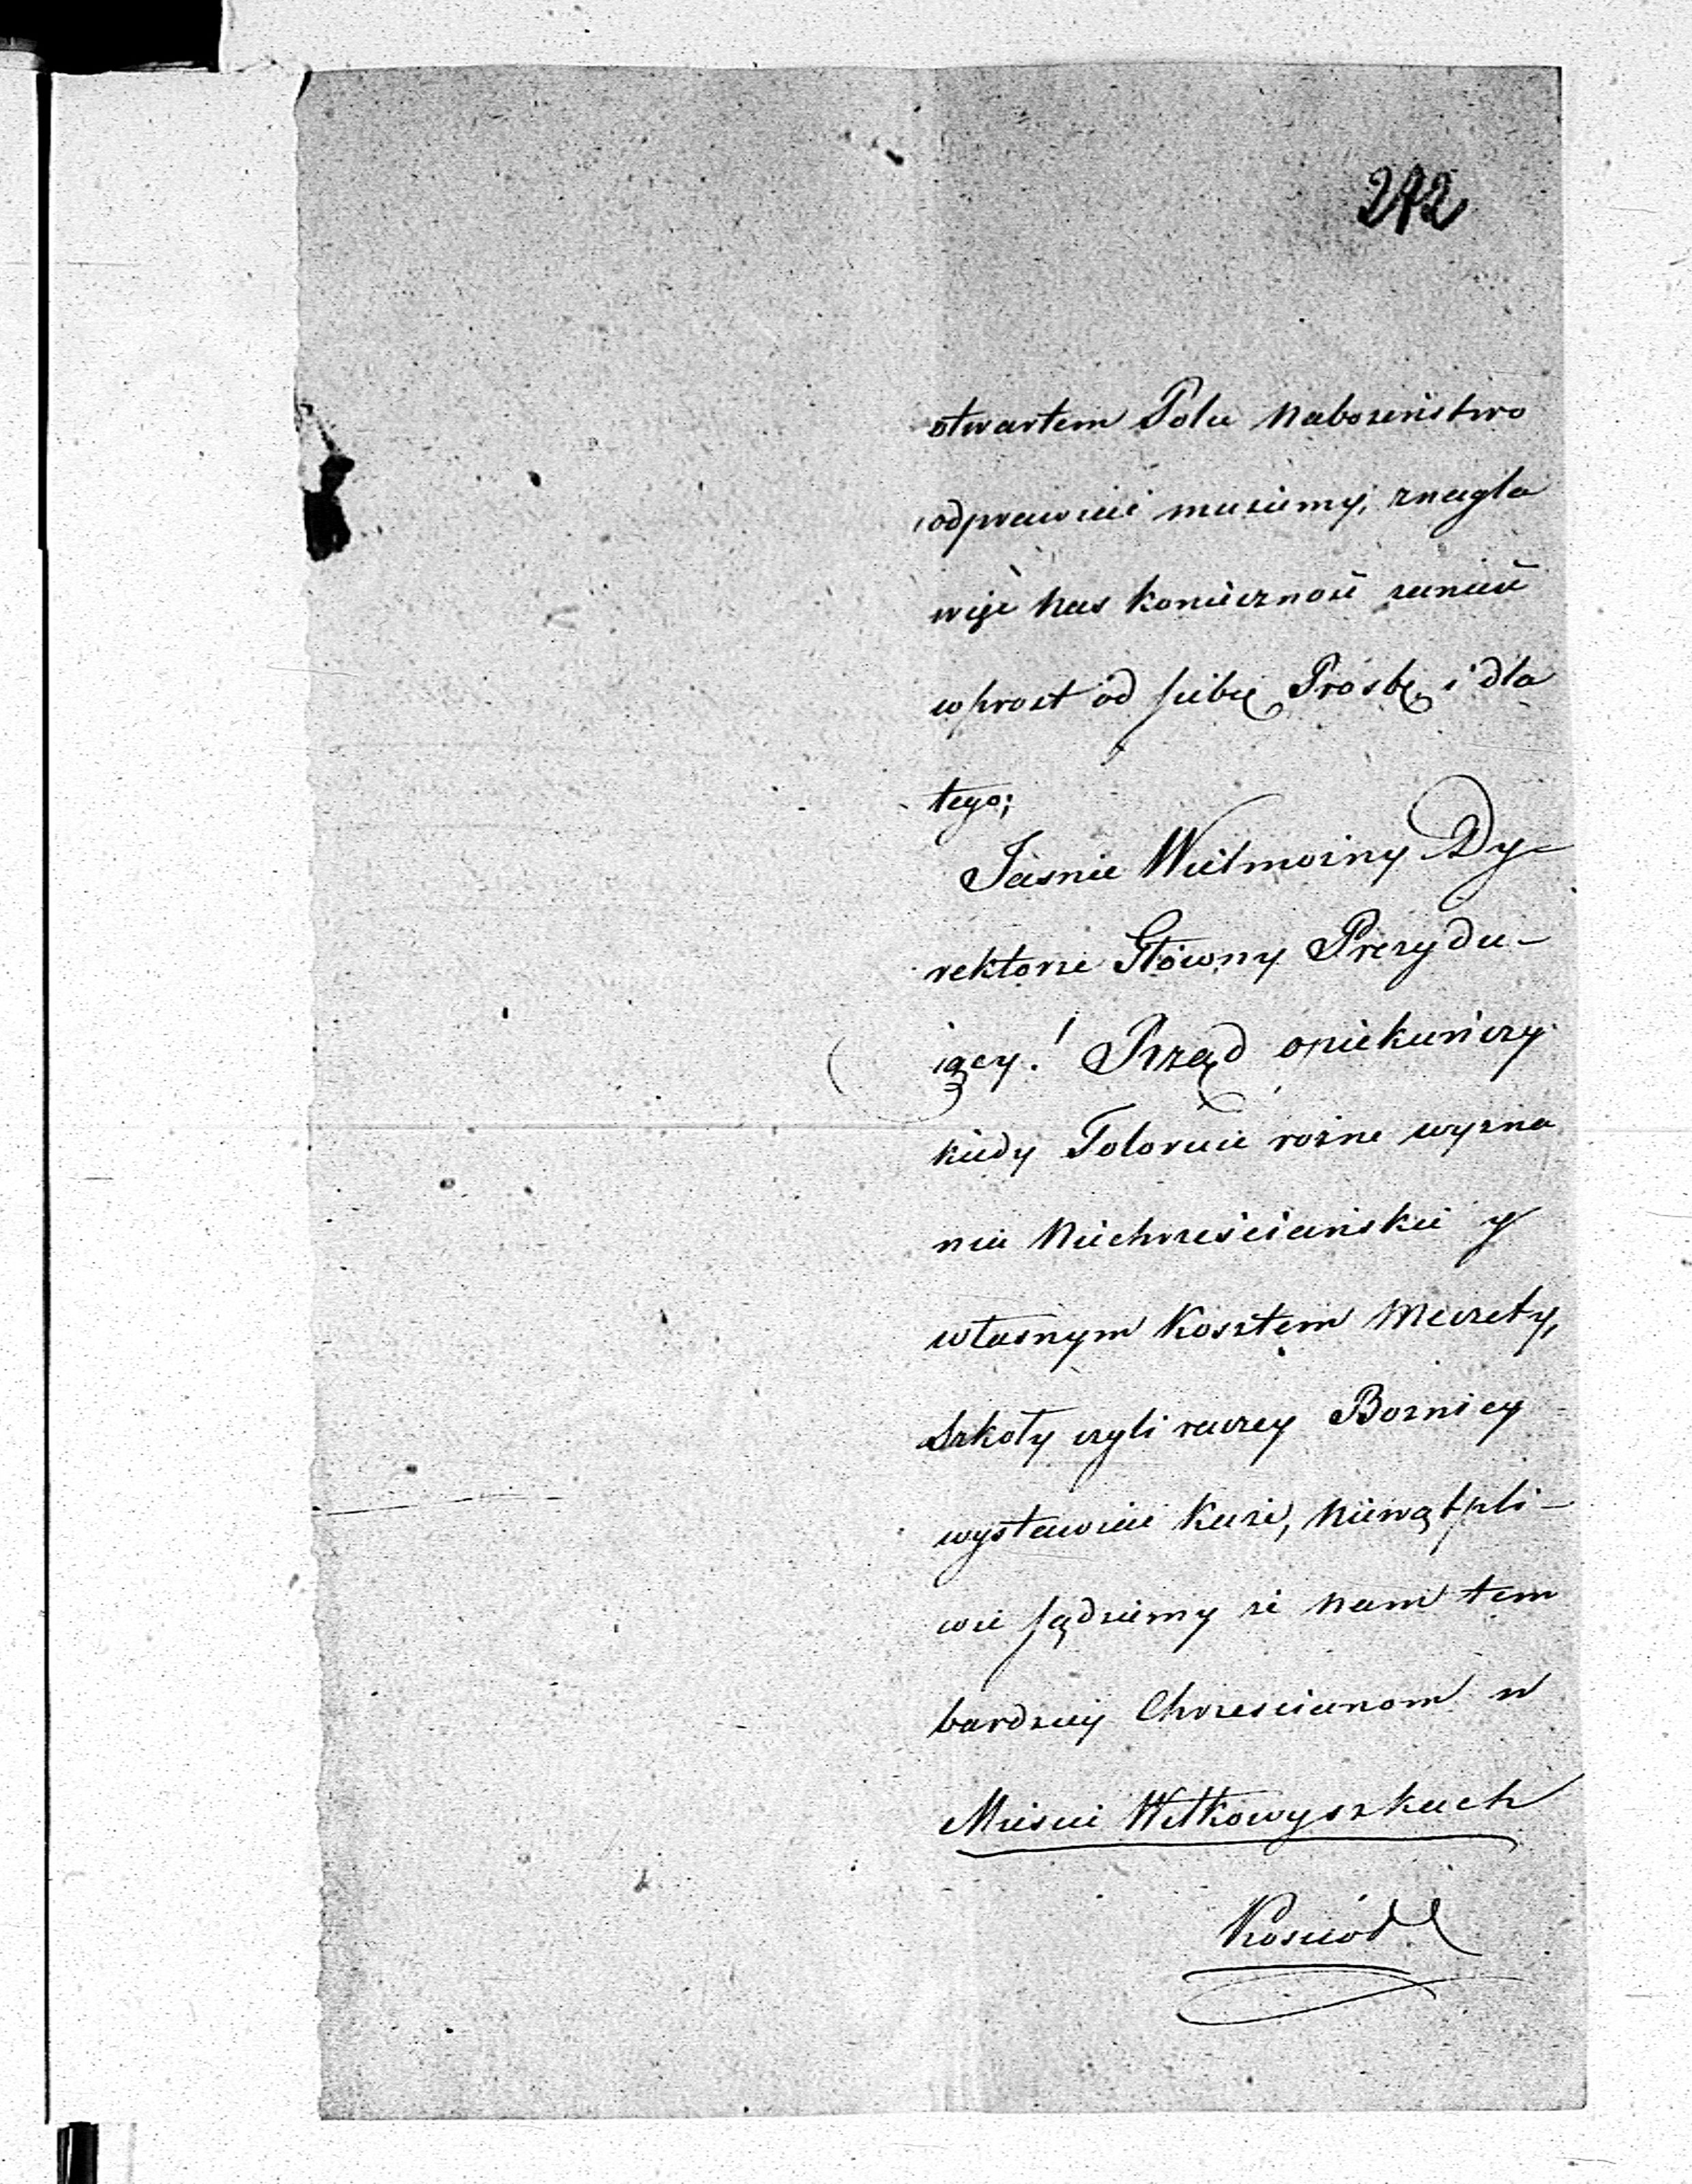 272
otwartem Polu Nabożeństwo
odprawiać musiemy, znagla
więc nas konieczność zanieść
wprost od siebie Prosbę i dla
tego;
Jaśnie Wielmożny Dy-
rektorze Główny Prezydu-
iący! Rząd opiekuńczy
kiedy Toloruie rożne wyzna
nia Niechrześciańskie y
własnym Kosztem Meczety,
Szkoły czyli raczey Boznicy
wystawiać każe, Niewątpli-
wie sądziemy że nam tem
bardziey Chrześcianom w
Mieście Wiłkowyszkach
Kosciół